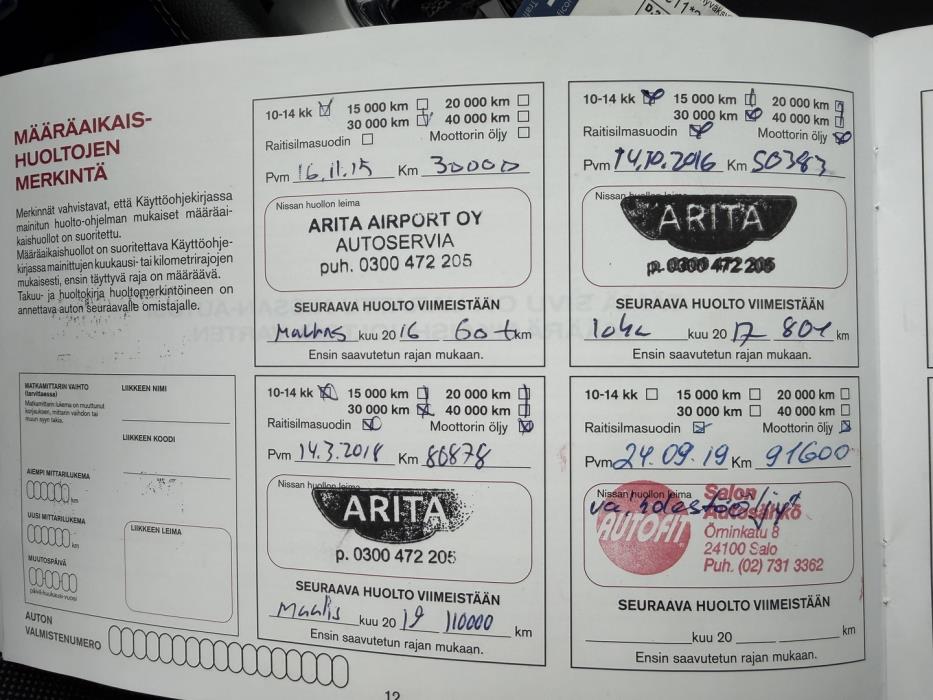 MÄÄRÄAIKAIS-
HUOLTOJEN
MERKINTÄ
Merkinnät vahvistavat, että Käyttöohjekirjassa
mainitun huolto-ohjelman mukaiset määräai-
kaishuollot on suoritettu.
Määräaikaishuollot on suoritettava Käyttöohje-
kirjassa mainittujen kuukausi- tai kilometrirajojen
mukaisesti, ensin täyttyvä raja on määräävä.
Takuu- ja huoltokirja huoltomerkintöineen on
annettava auton seuraavalle omistajalle.
10-14 kk 15 000 km 20 000 km
30 000 km 40 000 km
Raitisilmasuodin Moottorin öljy
Pvm 16.11.15 Km 30000
Nissan huollon leima
ARITA AIRPORT OY
AUTOSERVIA
puh. 0300 472 205
SEURAAVA HUOLTO VIIMEISTÄÄN
kuu 2016 60 t km
Ensin saavutetun rajan mukaan.
10-14 kk 15 000 km 20 000 km
30 000 km 40 000 km
Raitisilmasuodin Moottorin öljy
Pvm 14.10.2016 Km 50383
Nissan huollon leima
ARITA
p. 0300 472 205
SEURAAVA HUOLTO VIIMEISTÄÄN
loka kuu 2017 80t km
Ensin saavutetun rajan mukaan.
MATKAMITTARIN VAIHTO
(tarvittaessa)
Matkamittarin lukema on muuttunut
korjauksen, mittarin vaihdon tai
muun syyn takia.
AIEMPI MITTARILUKEMA
km
UUSI MITTARILUKEMA
km
MUUTOSPÄIVÄ
päivä-kuukausi-vuosi
LIIKKEEN NIMI
LIIKKEEN KOODI
LIIKKEEN LEIMA
AUTON
VALMISTENUMERO
10-14 kk 15 000 km 20 000 km
30 000 km 40 000 km
Raitisilmasuodin Moottorin öljy
Pvm 14.3.2018 Km 80878
Nissan huollon leima
ARITA
p. 0300 472 205
SEURAAVA HUOLTO VIIMEISTÄÄN
Maalis kuu 2019 110000 km
Ensin saavutetun rajan mukaan.
10-14 kk 15 000 km 20 000 km
30 000 km 40 000 km
Raitisilmasuodin Moottorin öljy
Pvm 24.09.19 Km 91600
Nissan huollon leima
AUTOFIT
Salon
Autosähkö
Örninkatu 8
24100 Salo
Puh. (02) 731 3362
SEURAAVA HUOLTO VIIMEISTÄÄN
kuu 20 km
Ensin saavutetun rajan mukaan.
12